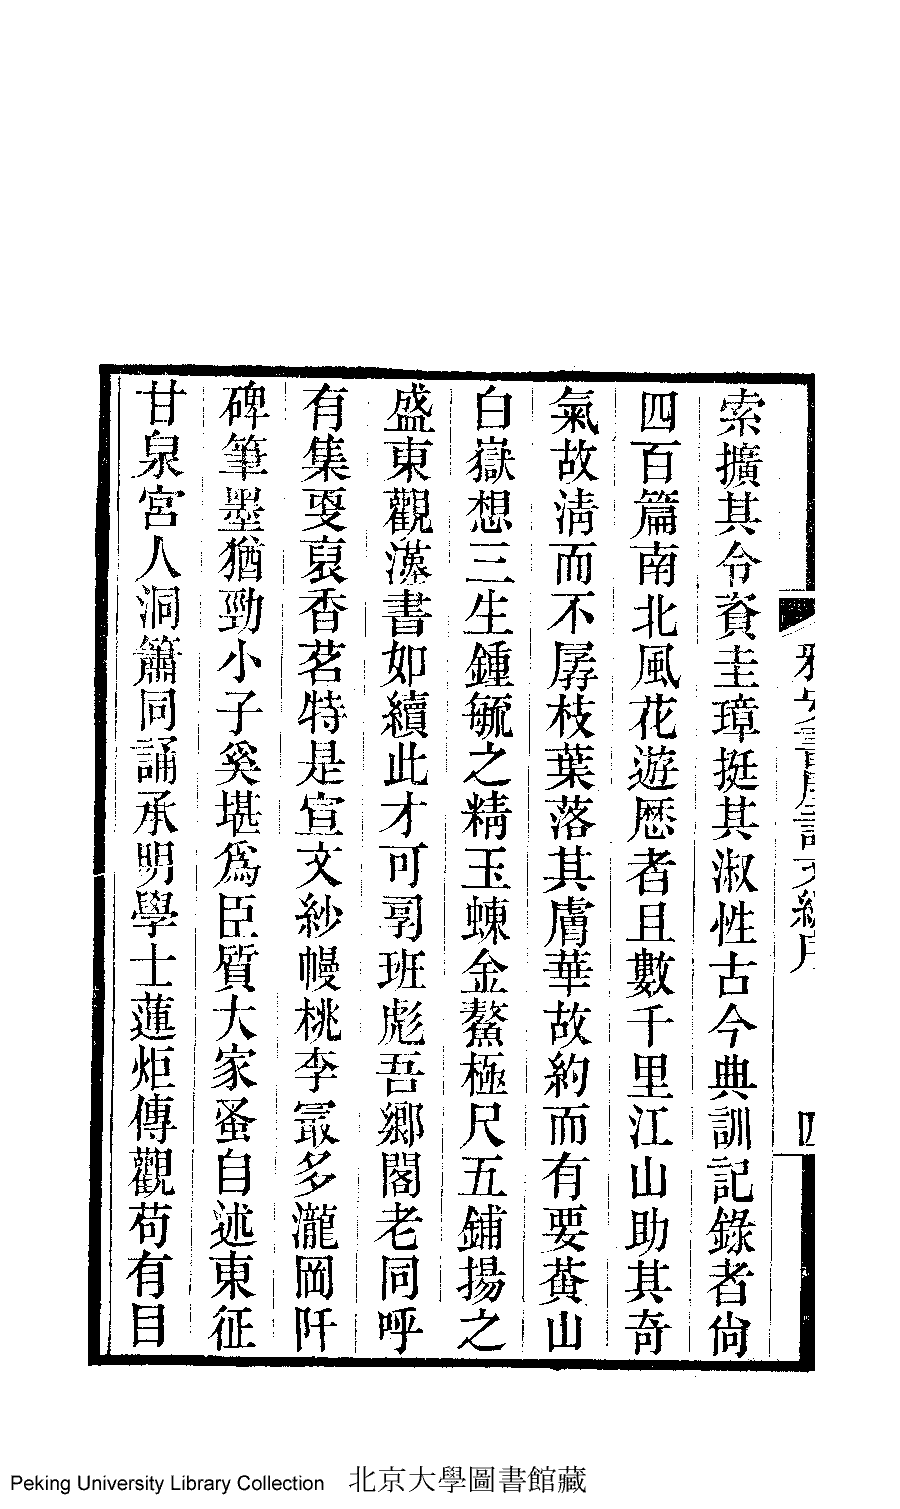 索擴其令資圭璋挺其淑性古今典訓記錄者尙
四百篇南北風花遊歷者且數千里江山助其奇
氣故淸而不孱枝葉落其膚華故約而有要黃山
白嶽想三生鍾毓之精玉蝀金鰲極尺五鋪揚之
盛東觀漢書如續此才可剔班彪吾鄉閣老同呼
有集叓裒香茗特是宣文紗幔桃李冣多瀧岡阡
碑筆墨猶勁小子奚堪爲臣質大家蚤自述東征
甘泉宮人洞簫同誦承明學士蓮炬傳觀苟有目
四
Peking University Library Collection 北京大學圖書館藏